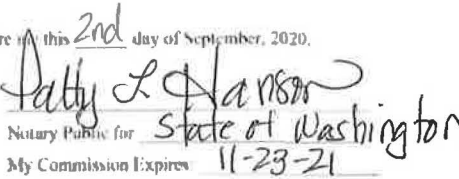 this 2nd day of September, 2020.
Patty L Hanson
Notary Public for State of Washington
My Commission Expires 11-23-21